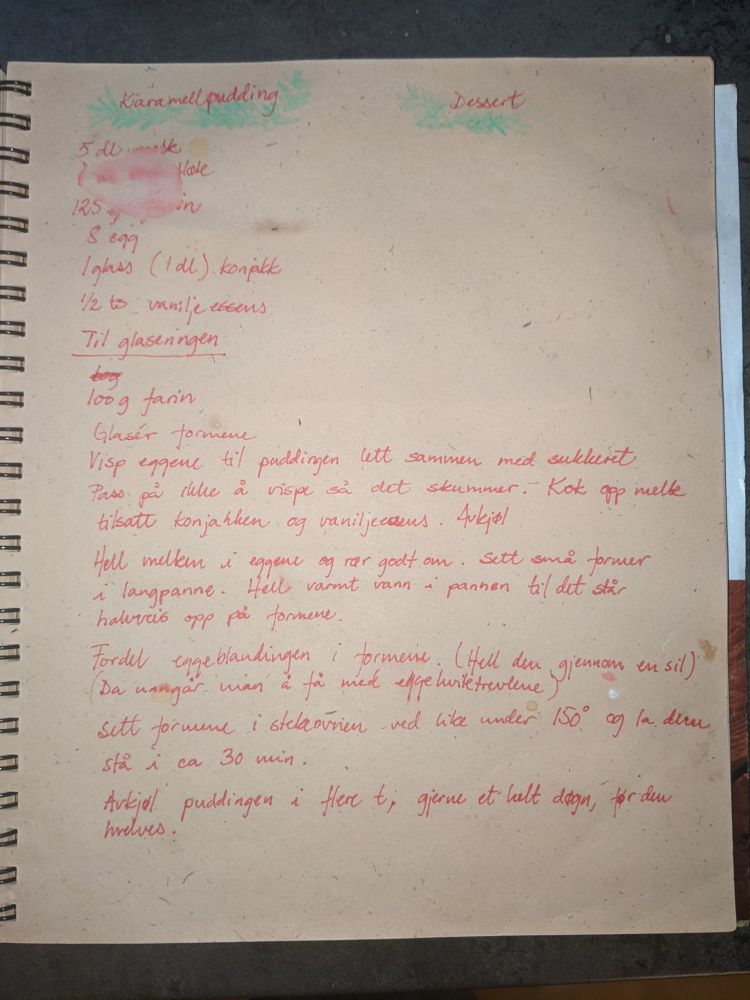 Karamellpudding
Dessert
5 dl
125
8 egg
1 glass (1 dl) konjakk
1/2 ts vanilje essens
Til glaseringen
100 g farin
Glasér formene
Visp eggene til puddingen lett sammen med sukkeret
Pass på ikke å vispe så det skummer. Kok opp melk
tilsatt konjakken og vaniljeessens. Avkjøl
Hell melken i eggene og rør godt om. Sett små former
i langpanne. Hell varmt vann i pannen til det står
halvveis opp på formene.
Fordel eggeblandingen i formene. (Hell den gjennom en sil)
(Da unngår man å få med eggehvitetrevlene)
Sett formene i stekeovnen ved like under 150° og la dem
stå i ca 30 min.
Avkjøl puddingen i flere t, gjerne et helt døgn, før den
hvelves.